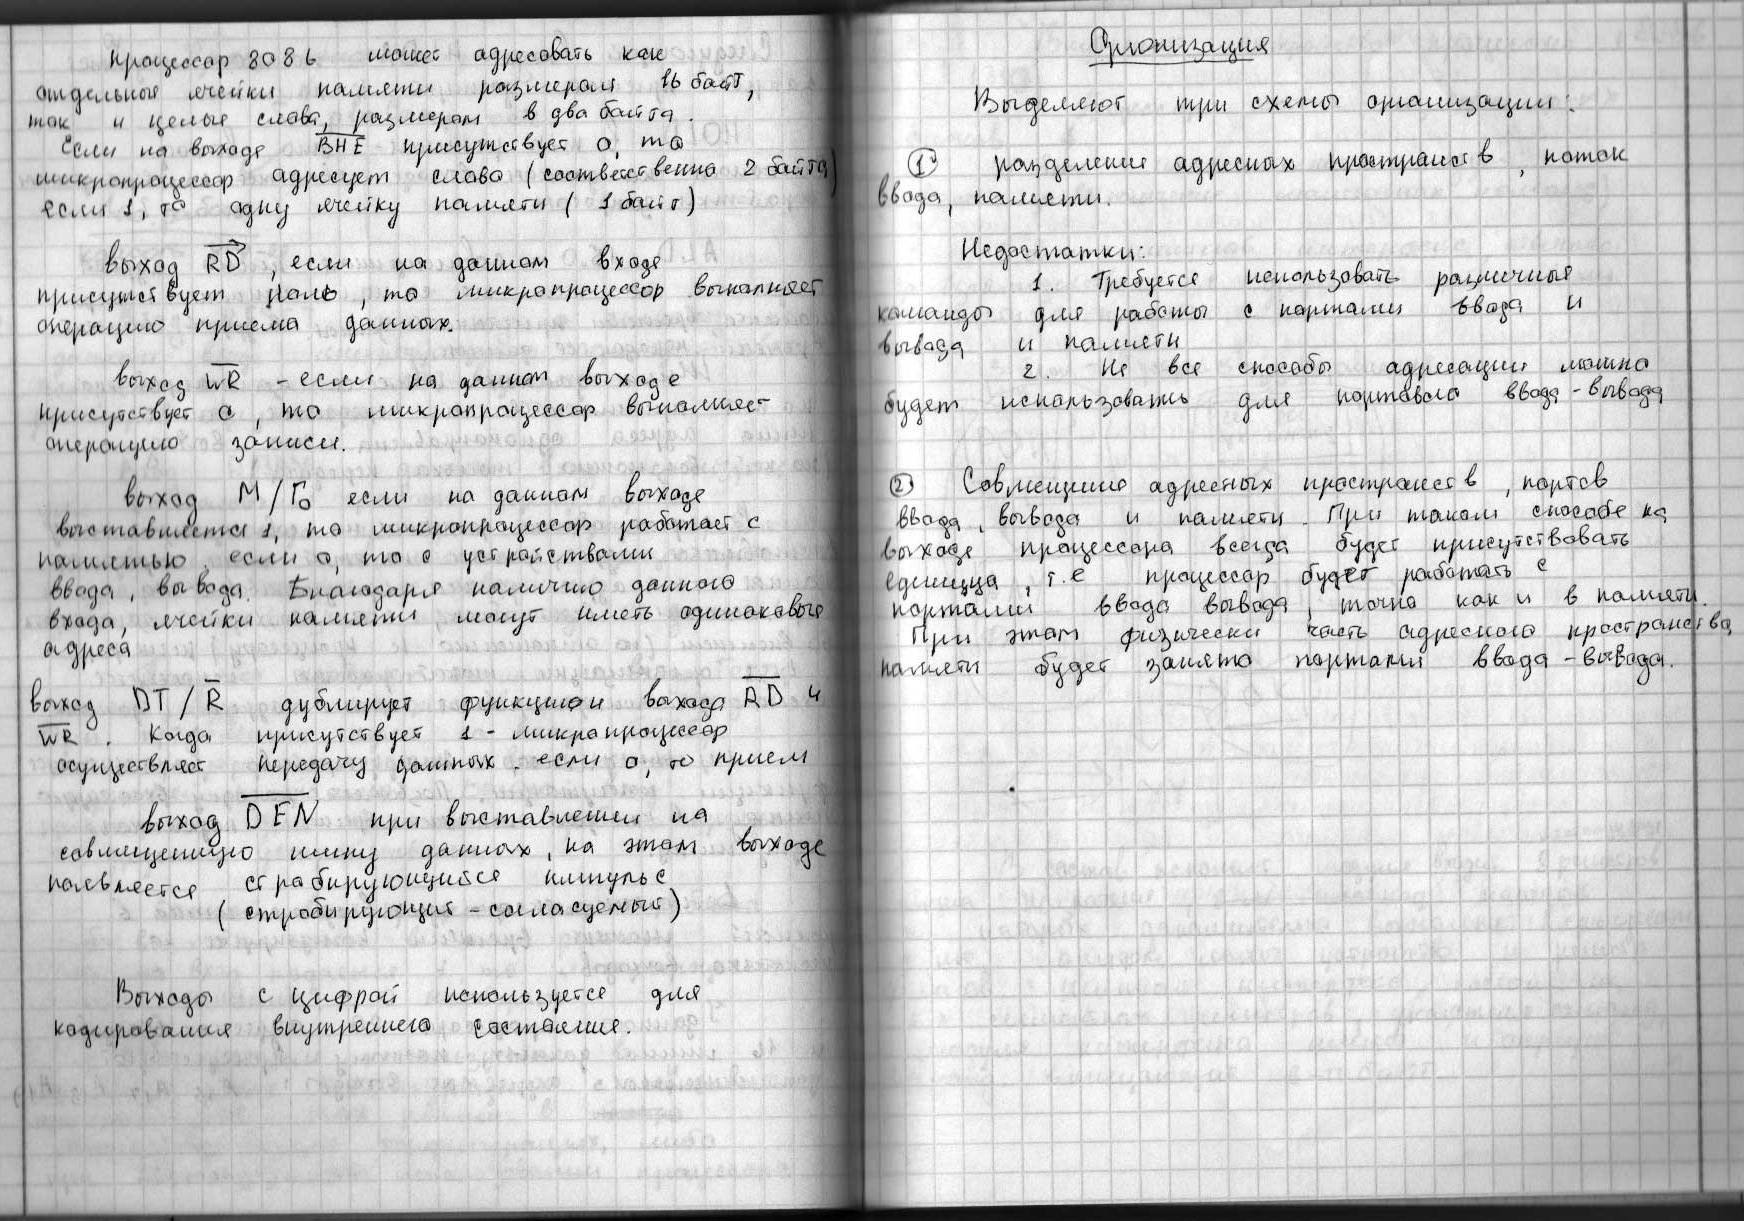 процессор 8086 может адресовать как
отдельные ячейки памяти размером 16 байт,
так и целые слова, размером в два байта.
Если на выходе B̅H̅E̅ присутствует 0, то
микропроцессор адресует слово (соответственно 2 байта)
если 1, то одну ячейку памяти (1 байт)
выход R̅D̅, если на данном входе
присутствует ноль, то микропроцессор выполняет
операцию приема данных.
выход W̅R̅ - если на данном выходе
присутствует 0, то микропроцессор выполняет
операцию записи.
выход M/Го если на данном выходе
выставляется 1, то микропроцессор работает с
памятью, если 0, то с устройствами
ввода, вывода. Благодаря наличию данного
входа, ячейки памяти могут иметь одинаковые
адреса
выход DT/R̅ дублирует функции выхода R̅D̅ и
W̅R̅. Когда присутствует 1 - микропроцессор
осуществляет передачу данных. если 0, то прием
выход D̅E̅N̅ при выставлении на
совмещенную шину данных, на этом выходе
появляется стробирующийся импульс
(стробирующий - согласуемый)
Выходы с цифрой используется для
кодирования внутреннего состояния.
Организация
Выделяют три схемы организации:
1) разделение адресных пространств, поток
ввода, памяти.
Недостатки:
1. Требуется использовать различные
команды для работы с портами ввода и
вывода и памяти
2. Не все способы адресации можно
будет использовать для портов ввода-вывода
2) Совмещение адресных пространств, портов
ввода, вывода и памяти. При таком способе на
выходе процессора всегда будет присутствовать
единица, т.е процессор будет работать с
портами ввода вывода, точно как и в памяти.
При этом физически часть адресного пространства,
памяти будет занята портами ввода-вывода.